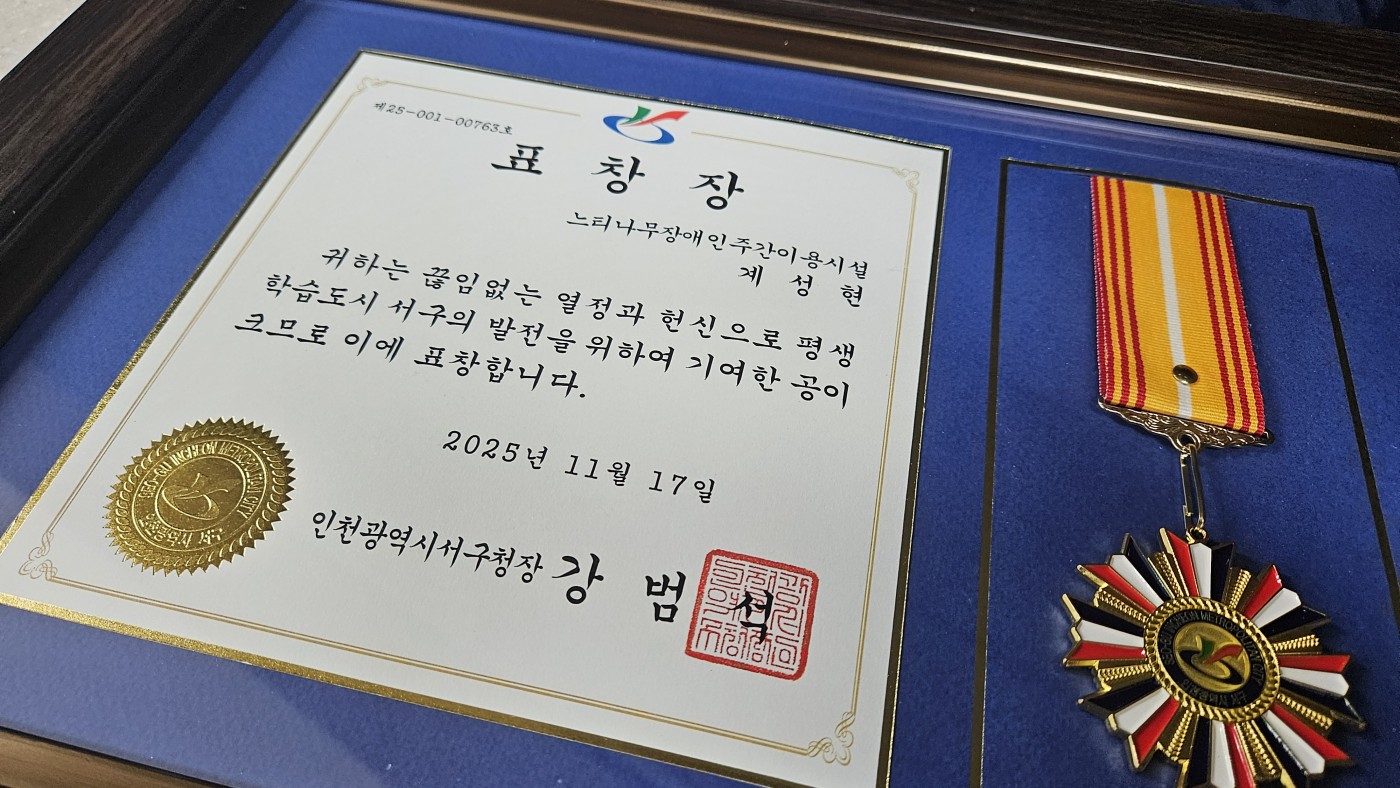 제25-001-00763호
표 창 장
느티나무장애인주간이용시설
계 성 현
귀하는 끊임없는 열정과 헌신으로 평생
학습도시 서구의 발전을 위하여 기여한 공이
크므로 이에 표창합니다.
2025년 11월 17일
인천광역시서구청장 강 범 석
SEO-GU INCHEON METROPOLITAN CITY
인천광역시 서구
인천광역시 서구